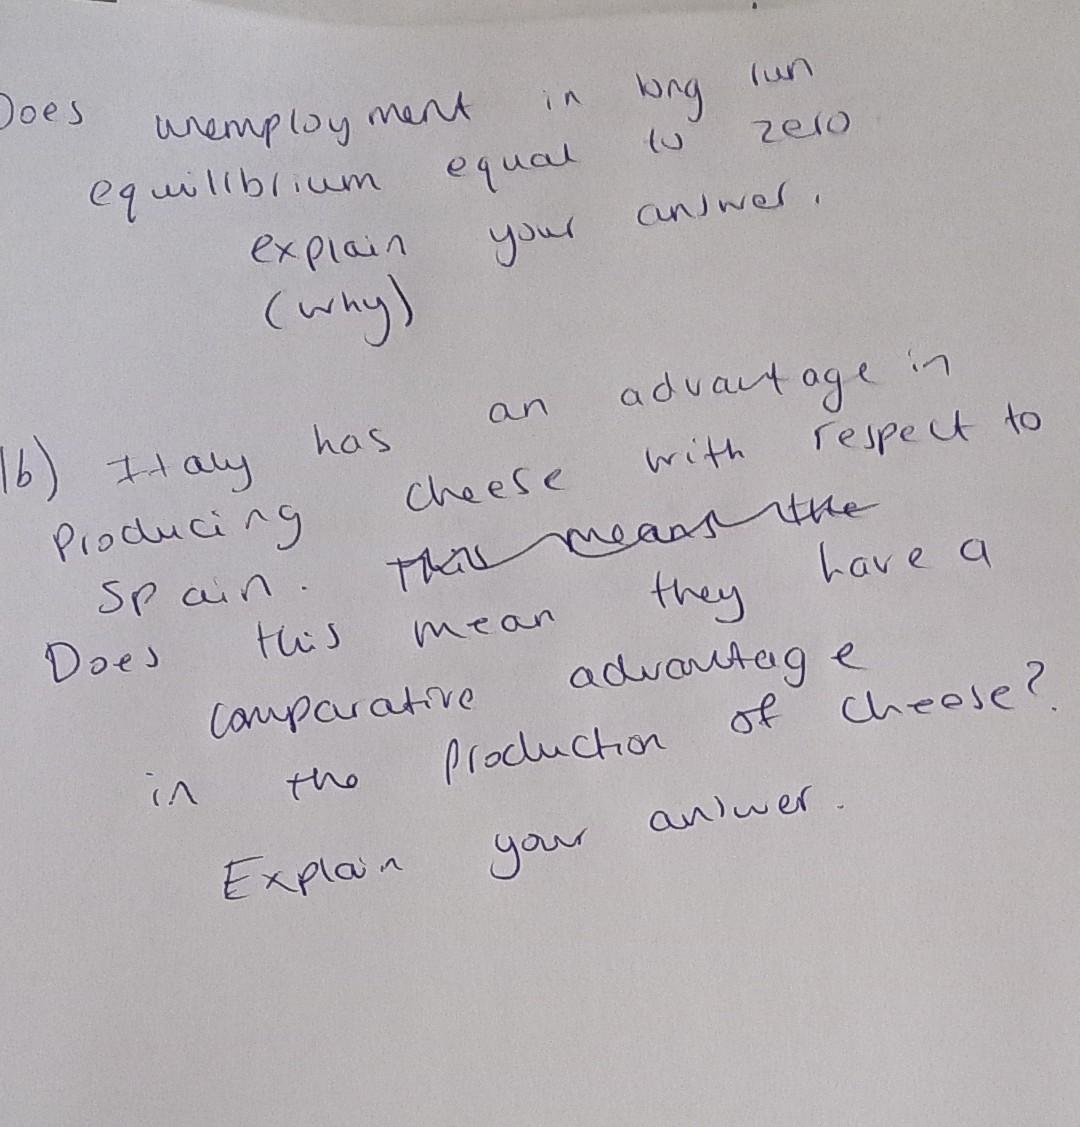 Does unemployment in long run
equilibrium equal to zero
explain your answer.
(why)
1b) Italy has an advantage in
Producing cheese with respect to
Spain. This means the
Does this mean they have a
comparative advantage
in the production of cheese?
Explain your answer.